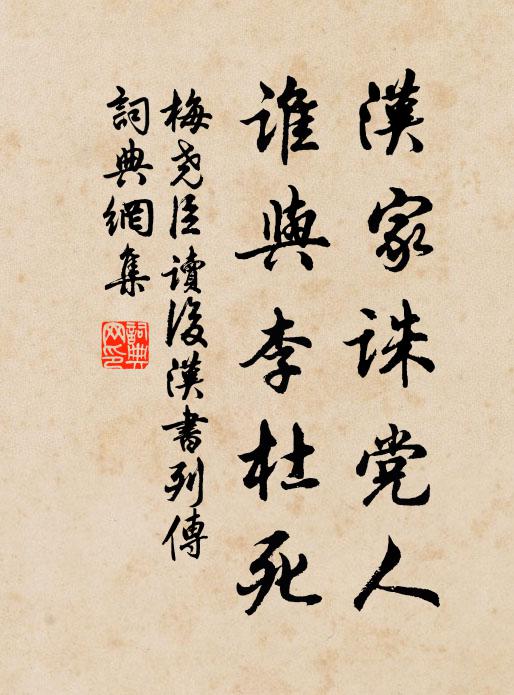 漢家诛党人
誰與李杜死
梅尧臣讀後漢書列傳
詞典網集
詞典网印